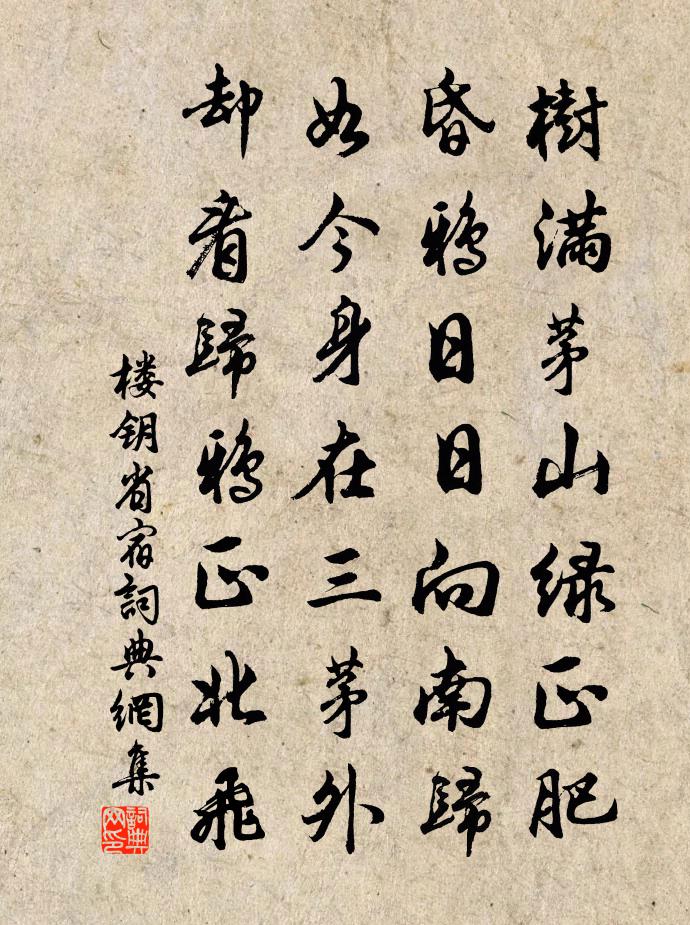 樹滿茅山綠正肥
昏鴉日日向南歸
如今身在三茅外
却看歸鴉正北飛
楼钥省宿詞典網集
詞典网印